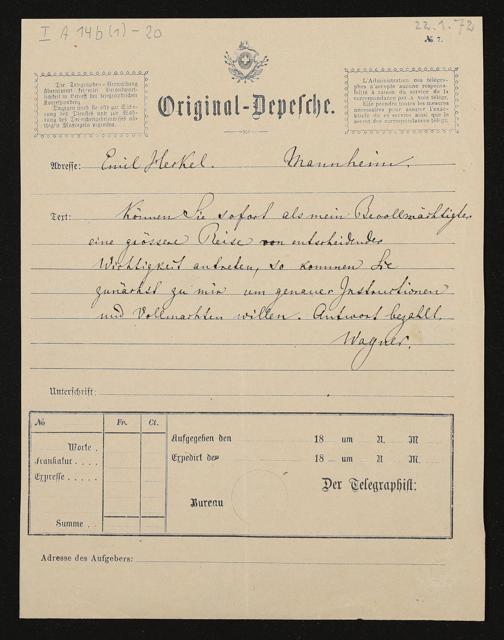 I A 14b(1) - 20
22.1.72
№ 7.
Die Telegraphen-Verwaltung
übernimmt keinerlei Verantwort-
lichkeit in Betreff der telegraphischen
Korrespondenz.
L'Administration des télégra-
phes n'accepte aucune responsa-
bilité à raison du service de la
correspondance par voie télégr.
Elle prendra toutes les mesures
nécessaires pour assurer l'exac-
titude de ce service ainsi que le
secret des correspondances télégr.
Original-Depesche.
Adresse: Emil Heckel. Mannheim.
Text: Können Sie sofort als mein Bevollmächtigter
eine grössere Reise von entscheidender
Wichtigkeit antreten, so kommen Sie
zunächst zu mir um genauer Instructionen
und Vollmachten willen. Antwort bezahlt.
Wagner.
Unterschrift:
№ Fr. Ct.
Worte .
Frankatur . . . .
Expresse . . . . .
Summe . .
Aufgegeben den 18 um U. M.
Expedirt den 18 um U. M.
Der Telegraphist:
Bureau
Adresse des Aufgebers: